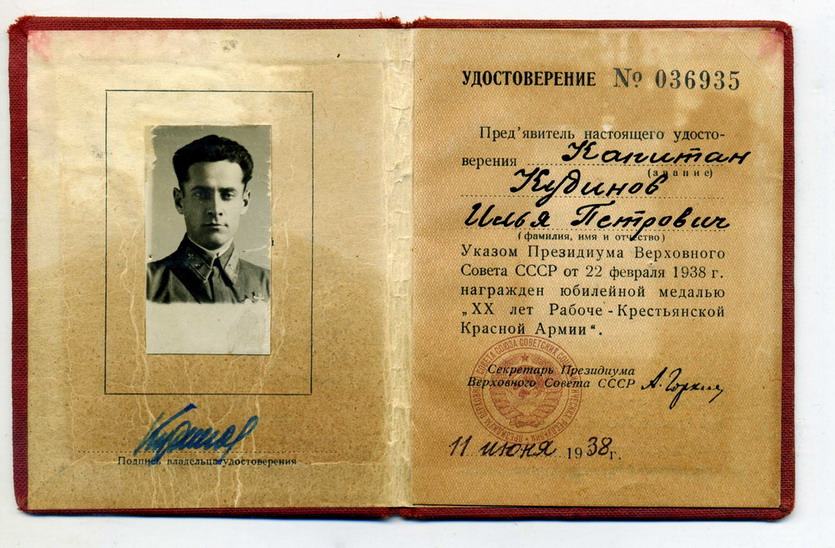 Кудинов
Подпись владельца удостоверения
УДОСТОВЕРЕНИЕ № 036935
Пред'явитель настоящего удосто-
верения Капитан
(звание)
Кудинов
Илья Петрович
(фамилия, имя и отчество)
Указом Президиума Верховного
Совета СССР от 22 февраля 1938 г.
награжден юбилейной медалью
„XX лет Рабоче-Крестьянской
Красной Армии“.
Секретарь Президиума
Верховного Совета СССР А. Горкин
11 июня 1938 г.